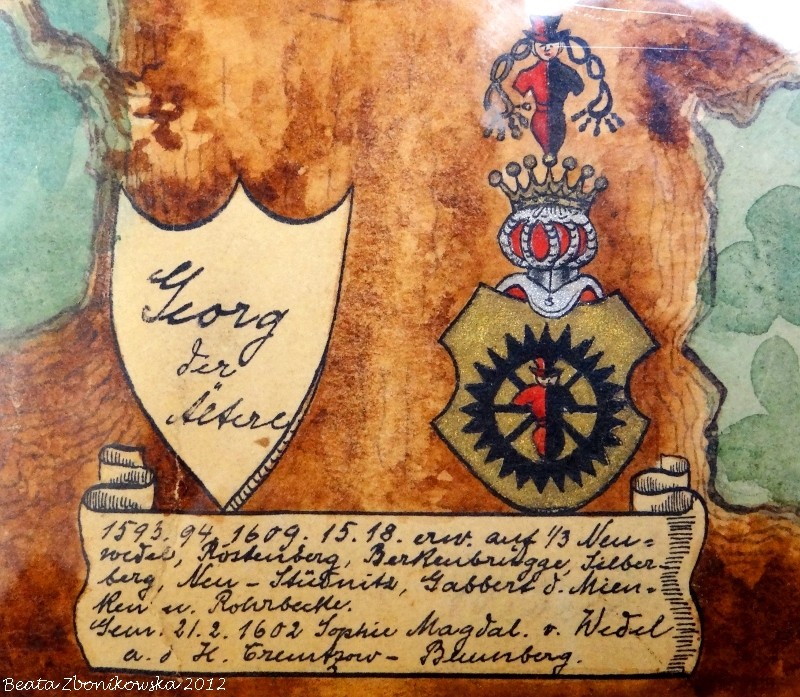 Georg
der
Ältere
1593. 94. 1609. 15. 18. erw. auf 1/3 Neu=
wedel, Rostenberg, Berkenbrügge, Silber-
berg, Neu - Stüdnitz, Gabbert d. Mien-
ken u. Rohrbecke.
Gem. 21. 2. 1602 Sophie Magdal. v. Wedel
a. d H. Cremtzow - Blumberg.
Beata Zbonikowska 2012